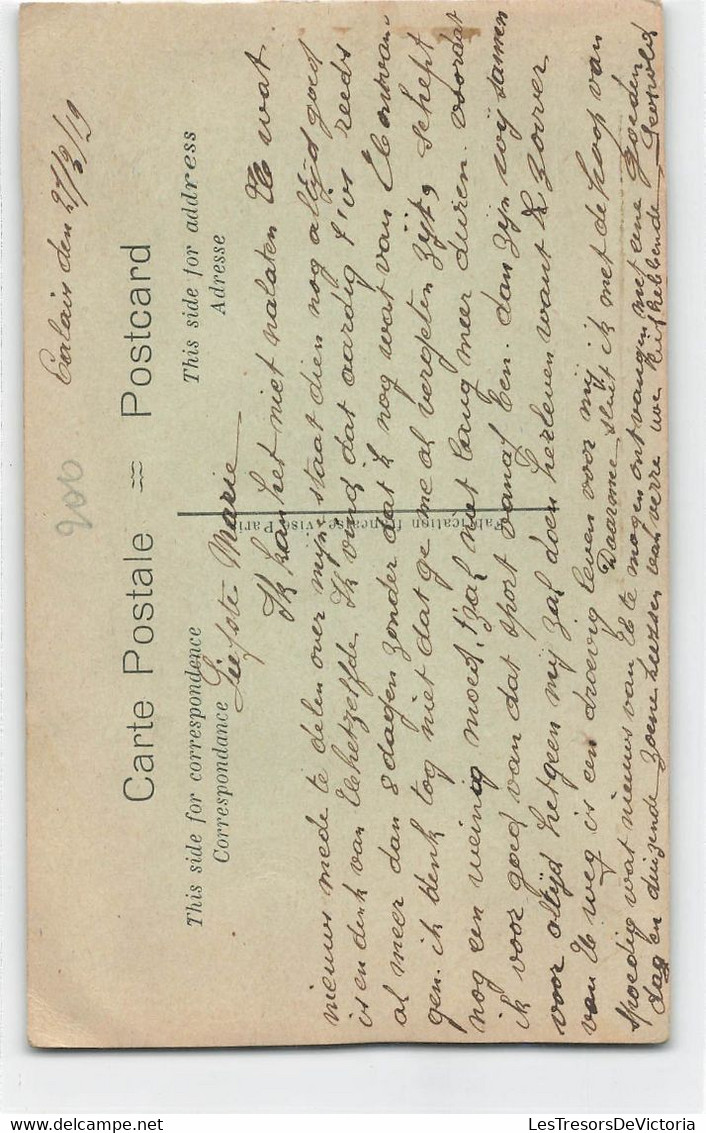 Calais den 27/3/19
200
Carte Postale == Postcard
This side for correspondence
Correspondance
This side for address
Adresse
Fabrication française - visé Paris
Liefste Marie
Ik kan het niet nalaten U wat
nieuws mede te delen over mijn staat dien nog altijd goed
is en denk van U hetzelfde. Ik vind dat aardig t'is reeds
al meer dan 8 dagen zonder dat ik nog wat van U ontvan
gen. ik denk tog niet dat ge me al vergeten zijt, schept
nog een weinig moed, t'zal niet lang meer duren voordat
ik voor goed van dat sport vanaf ben. dan zijn wij samen
voor altijd hetgeen mij zal doen herleven want zoover
van U weg is een droevig leven voor mij
Daarmee sluit ik met de hoop van
spoedig wat nieuws van U te mogen ontvangen met eene goeden
dag en duizende zoene kussen van verre uw liefhebbende Leopold
LesTresorsDeVictoria.com